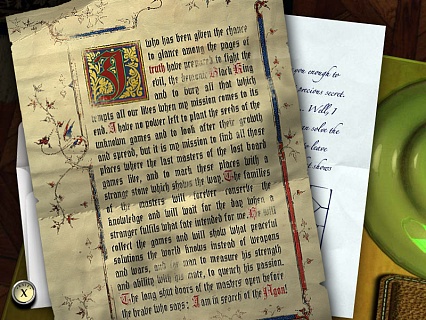 I who has been given the chance
to glance among the pages of
truth have prepared to fight the
evil, the Black King
and to bury all that which
tempts all our lives when my mission comes to its
end. I have no power left to plant the seeds of the
unknown games and to look after their growth
and spread, but it is my mission to find all those
places where the last masters of the lost board
games live, and to mark these places with a
strange stone which shows the way. The families
of the masters will forever conserve the
knowledge and will wait for the day when a
stranger fulfils what fate intended for me. He will
collect the games and will show what peaceful
solutions the world knows instead of weapons
and wars, and man to measure his strength
and ability with his mate, to quench his passion.
The long shut doors of the masters open before
the brave who says: I am in search of the Agon!
you enough to
precious secret.
Well, I
solve the
to leave
shows
X